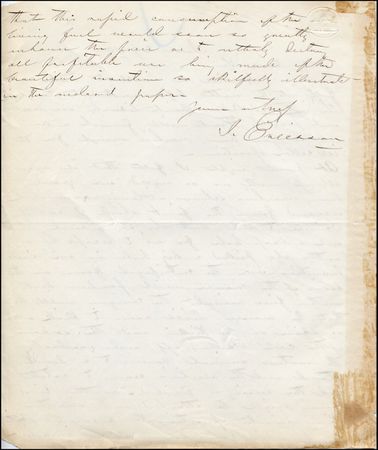 that this rapid consumption of the
living fuel would soon so greatly
enhance the price as to utterly
all profitable use being made of the
beautiful invention so skilfully
in the enclosed paper
Yours
J. Ericsson